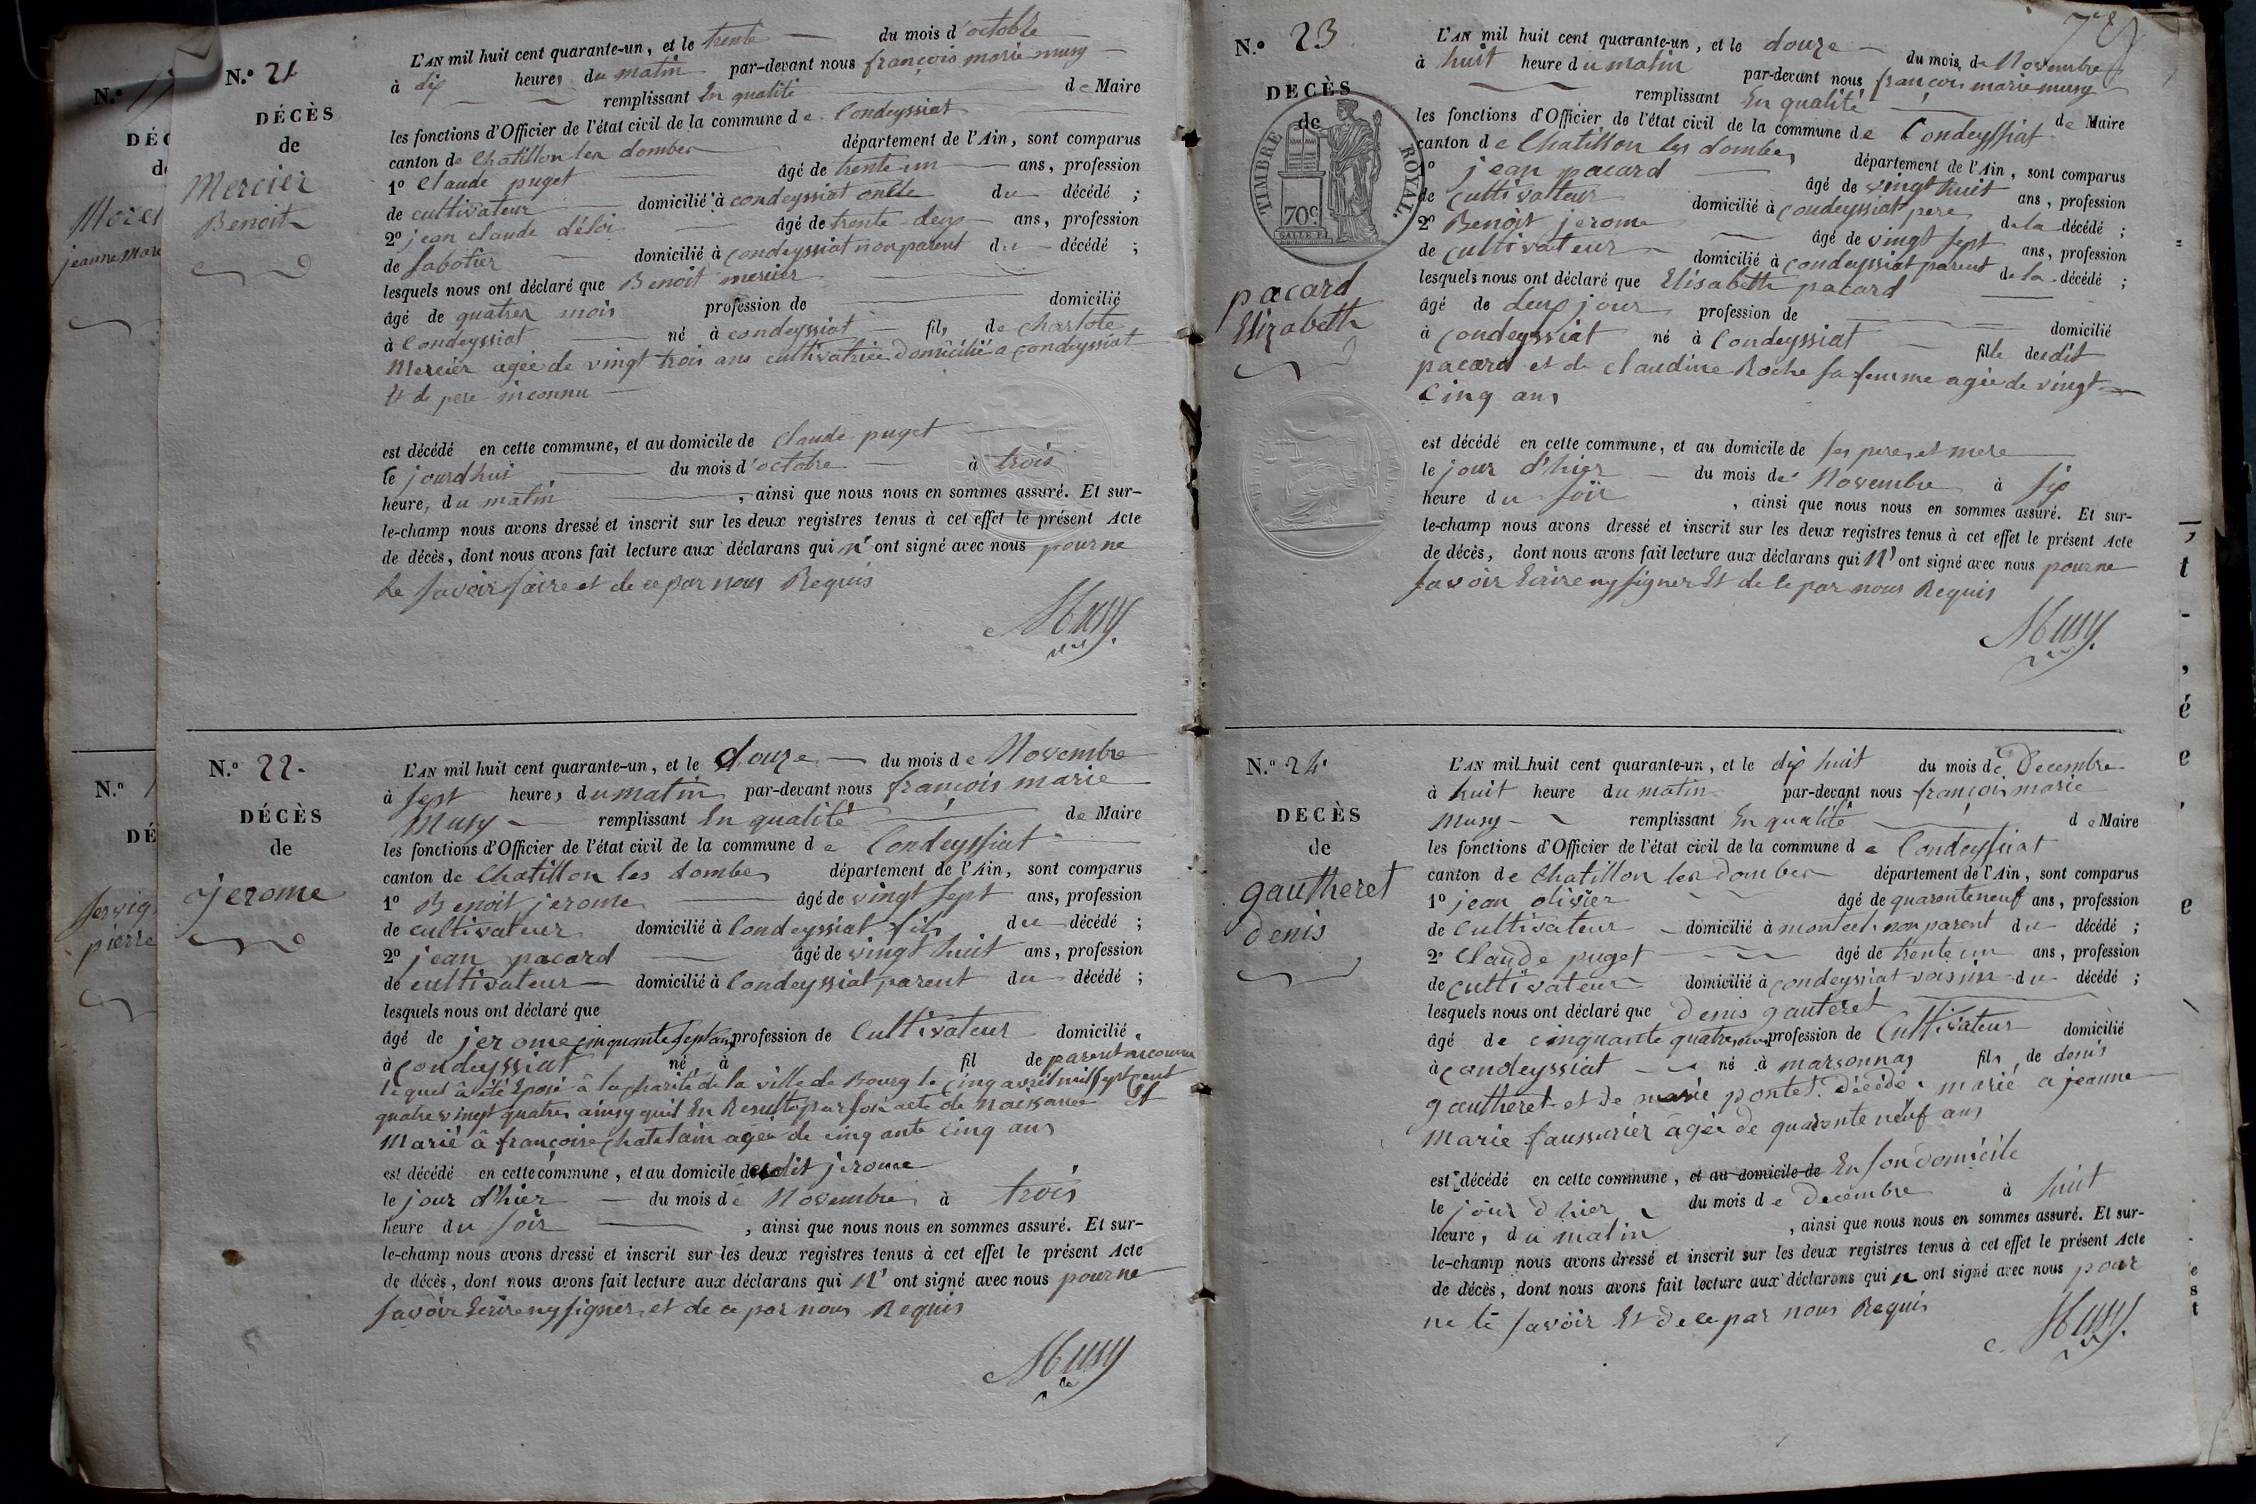 N.° 21
DÉCÈS
de
Mercier
Benoit
L'AN mil huit cent quarante-un, et le trente du mois d'octobre
à dix heures du matin par-devant nous françois marie musy
remplissant En qualité de Maire
les fonctions d'Officier de l'état civil de la commune de Condeyssiat
canton de Chatillon les dombes département de l'Ain, sont comparus
1° Claude puget âgé de trente un ans, profession
de cultivateur domicilié à condeyssiat oncle du décédé ;
2° jean claude déloi âgé de trente deux ans, profession
de sabotier domicilié à condeyssiat non parent du décédé ;
lesquels nous ont déclaré que Benoit mercier
âgé de quatres mois profession de domicilié
à Condeyssiat né à condeyssiat fils de charlote
Mercier agée de vingt trois ans cultivatrice domicilié a condeyssiat
Et de pere inconnu
est décédé en cette commune, et au domicile de Claude puget
le jourdhui du mois d'octobre à trois
heures du matin, ainsi que nous nous en sommes assuré. Et sur-
le-champ nous avons dressé et inscrit sur les deux registres tenus à cet effet le présent Acte
de décès, dont nous avons fait lecture aux déclarans qui n' ont signé avec nous pour ne
le savoir faire et de ce par nous Requis
Musy
N.° 22
DÉCÈS
de
jerome
L'AN mil huit cent quarante-un, et le douze du mois de Novembre
à sept heures du matin par-devant nous françois marie
Musy remplissant En qualité de Maire
les fonctions d'Officier de l'état civil de la commune de Condeyssiat
canton de Chatillon les dombes département de l'Ain, sont comparus
1° Benoit jerome âgé de vingt sept ans, profession
de cultivateur domicilié à Condeyssiat fils du décédé ;
2° jean pacard âgé de vingt huit ans, profession
de cultivateur domicilié à Condeyssiat parent du décédé ;
lesquels nous ont déclaré que
âgé de jerome cinquante sept ans profession de Cultivateur domicilié
à Condeyssiat né à fil de parent inconnu
lequel à été Exposé à la charité de la ville de Bourg le cinq avril mil sept cent
quatre vingt quatre ainsy quil En Resulte par son acte de naissance Et
Marié à françoise chatelain agée de cinq ante cinq ans
est décédé en cette commune, et au domicile dudit jerome
le jour d'hier du mois de Novembre à trois
heure du soir, ainsi que nous nous en sommes assuré. Et sur-
le-champ nous avons dressé et inscrit sur les deux registres tenus à cet effet le présent Acte
de décès, dont nous avons fait lecture aux déclarans qui n' ont signé avec nous pour ne
savoir Ecrire ny signer et de ce par nous Requis
Musy
N.° 23
DECÈS
de
TIMBRE ROYAL.
70c
pacard
Elizabeth
L'AN mil huit cent quarante-un, et le douze du mois de Novembre
à huit heure du matin par-devant nous françois marie musy
remplissant En qualité de Maire
les fonctions d'Officier de l'état civil de la commune de Condeyssiat
canton de Chatillon les dombes département de l'Ain, sont comparus
1° jean pacard âgé de vingt huit ans, profession
de cultivateur domicilié à condeyssiat pere de la décédé ;
2° Benoit jerome âgé de vingt sept ans, profession
de cultivateur domicilié à condeyssiat parent de la décédé ;
lesquels nous ont déclaré que Elisabeth pacard
âgé de deux jour profession de domicilié
à Condeyssiat né à Condeyssiat fille dudit
pacard et de claudine Roche sa femme agée de vingt
cinq ans
est décédé en cette commune, et au domicile de ses pere et mere
le jour d'hier du mois de Novembre à six
heure du soir, ainsi que nous nous en sommes assuré. Et sur-
le-champ nous avons dressé et inscrit sur les deux registres tenus à cet effet le présent Acte
de décès, dont nous avons fait lecture aux déclarans qui n' ont signé avec nous pour ne
savoir Ecrire ny signer Et de ce par nous Requis
Musy
N.° 24
DECÈS
de
gautheret
denis
L'AN mil huit cent quarante-un, et le dix huit du mois de Decembre
à huit heure du matin par-devant nous françois marie
Musy remplissant En qualité de Maire
les fonctions d'Officier de l'état civil de la commune de Condeyssiat
canton de Chatillon les dombes département de l'Ain, sont comparus
1° jean olivier âgé de quarente neuf ans, profession
de Cultivateur domicilié à montcel non parent du décédé ;
2° Claude puget âgé de trente un ans, profession
de cultivateur domicilié à condeyssiat voisin du décédé ;
lesquels nous ont déclaré que denis gauteret
âgé de cinquante quatre ans profession de Cultivateur domicilié
à condeyssiat né à marsonnas fils de denis
gautheret et de marie pontet décédé marié a jeanne
Marie faussurier âgée de quarente neuf ans
est décédé en cette commune, et au domicile de En son domicile
le jour d'hier du mois de Decembre à huit
heure, du matin, ainsi que nous nous en sommes assuré. Et sur-
le-champ nous avons dressé et inscrit sur les deux registres tenus à cet effet le présent Acte
de décès, dont nous avons fait lecture aux déclarans qui n ont signé avec nous pour
ne le savoir Et de ce par nous Requis
Musy